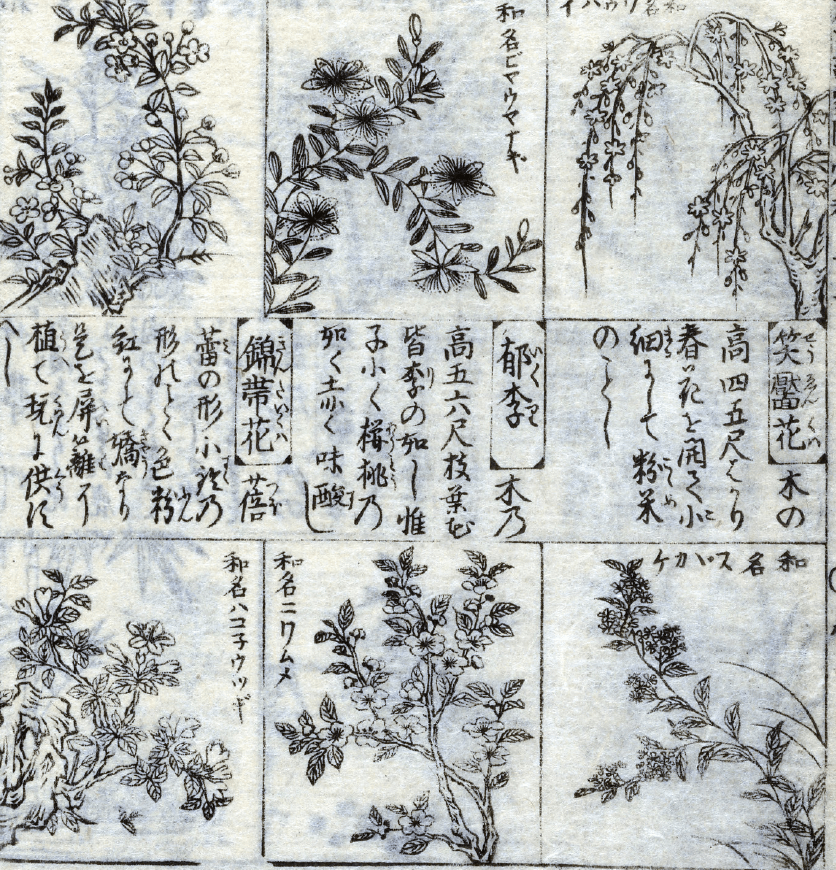 和名ビヤウヤナギ
笑靨花 木の
高四五尺ばかり
春花を開く小
細にして粉米
のごとし
郁李 木乃
高五六尺枝葉花
皆李の如し惟
子小く櫻桃乃
如く赤く味酸し
錦帯花 蓓
蕾の形小鈴乃
形のごとく色粉
紅にして嬌なり
是を屏籬に
植て玩に供す
べし
和名スヾカケ
和名ニワムメ
和名ハコ子ウツギ